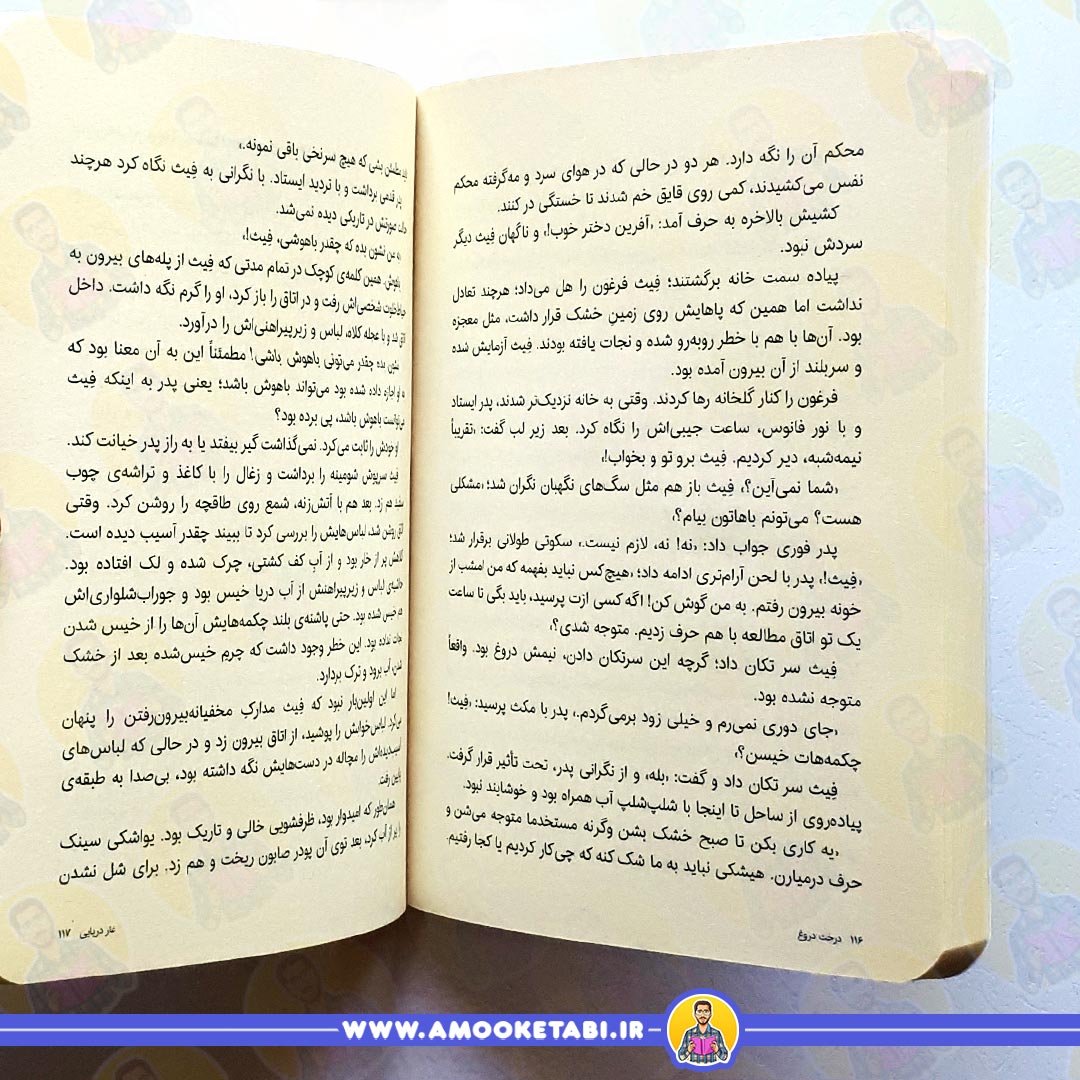 محکم آن را نگه دارد. هر دو در حالی که در هوای سرد و مه‌گرفته محکم
نفس می‌کشیدند، کمی روی قایق خم شدند تا خستگی در کنند.
کشیش بالاخره به حرف آمد: «آفرین دختر خوب!» و ناگهان فِیث دیگر
سردش نبود.
پیاده سمت خانه برگشتند؛ فِیث فرغون را هل می‌داد؛ هرچند تعادل
نداشت اما همین که پاهایش روی زمینِ خشک قرار داشت، مثل معجزه
بود. آن‌ها با هم با خطر روبه‌رو شده و نجات یافته بودند. فِیث آزمایش شده
و سربلند از آن بیرون آمده بود.
فرغون را کنار گلخانه رها کردند. وقتی به خانه نزدیک‌تر شدند، پدر ایستاد
و با نور فانوس، ساعت جیبی‌اش را نگاه کرد. بعد زیر لب گفت: «تقریباً
نیمه‌شبه، دیر کردیم. فِیث برو تو و بخواب!»
«شما نمی‌آین؟» فِیث باز هم مثل سگ‌های نگهبان نگران شد؛ «مشکلی
هست؟ می‌تونم باهاتون بیام؟»
پدر فوری جواب داد: «نه! نه، لازم نیست.» سکوتی طولانی برقرار شد؛
«فِیث!» پدر با لحن آرام‌تری ادامه داد؛ «هیچ‌کس نباید بفهمه که من امشب از
خونه بیرون رفتم. به من گوش کن! اگه کسی ازت پرسید، باید بگی تا ساعت
یک تو اتاق مطالعه با هم حرف زدیم. متوجه شدی؟»
فِیث سر تکان داد؛ گرچه این سرتکان دادن، نیمش دروغ بود. واقعاً
متوجه نشده بود.
«جای دوری نمی‌رم و خیلی زود برمی‌گردم.» پدر با مکث پرسید: «فِیث!
چکمه‌هات خیسن؟»
فِیث سر تکان داد و گفت: «بله» و از نگرانی پدر، تحت تأثیر قرار گرفت.
پیاده‌روی از ساحل تا اینجا با شلپ‌شلپ آب همراه بود و خوشایند نبود.
«یه کاری بکن تا صبح خشک بشن وگرنه مستخدما متوجه می‌شن و
حرف درمیارن. هیشکی نباید به ما شک کنه که چی‌کار کردیم یا کجا رفتیم.
۱۱۶ درخت دروغ
باید مطمئن بشی که هیچ سرنخی باقی نمونه.»
پدر قدمی برداشت و با تردید ایستاد. با نگرانی به فِیث نگاه کرد هرچند
حالت صورتش در تاریکی دیده نمی‌شد.
«به من نشون بده که چقدر باهوشی، فِیث!»
باهوش. همین کلمه‌ی کوچک در تمام مدتی که فِیث از پله‌های بیرون به
رفت و در اتاق را باز کرد، او را گرم نگه داشت. داخل
اتاق شد و با عجله کلاه، لباس و زیرپیراهنی‌اش را درآورد.
نشون بده چقدر می‌تونی باهوش باشی! مطمئناً این به آن معنا بود که
به او اجازه داده شده بود می‌تواند باهوش باشد؛ یعنی پدر به اینکه فِیث
می‌توانست باهوش باشد، پی برده بود؟
او خودش را ثابت می‌کرد. نمی‌گذاشت گیر بیفتد یا به راز پدر خیانت کند.
فِیث سرپوش شومینه را برداشت و زغال را با کاغذ و تراشه‌ی چوب
سفید هم زد. بعد هم با آتش‌زنه، شمع روی طاقچه را روشن کرد. وقتی
اتاق روشن شد، لباس‌هایش را بررسی کرد تا ببیند چقدر آسیب دیده است.
کلاهش پر از خار بود و از آب کف کشتی، چرک شده و لک افتاده بود.
حاشیه‌ی لباس و زیرپیراهنش از آب دریا خیس بود و جوراب‌شلواری‌اش
هم خیس شده بود. حتی پاشنه‌ی بلند چکمه‌هایش آن‌ها را از خیس شدن
نجات نداده بود. این خطر وجود داشت که چرمِ خیس‌شده بعد از خشک
شدن، آب برود و ترک بردارد.
اما این اولین‌بار نبود که فِیث مدارکِ مخفیانه‌بیرون‌رفتن را پنهان
می‌کرد. لباس‌خوابش را پوشید، از اتاق بیرون زد و در حالی که لباس‌های
آسیب‌دیده‌اش را مچاله در دست‌هایش نگه داشته بود، بی‌صدا به طبقه‌ی
پایین رفت.
همان‌طور که امیدوار بود، ظرفشویی خالی و تاریک بود. یواشکی سینک
را پر از آب کرد، بعد توی آن پودر صابون ریخت و هم زد. برای شل نشدن
غار دریایی ۱۱۷
WWW.AMOOKETABI.IR